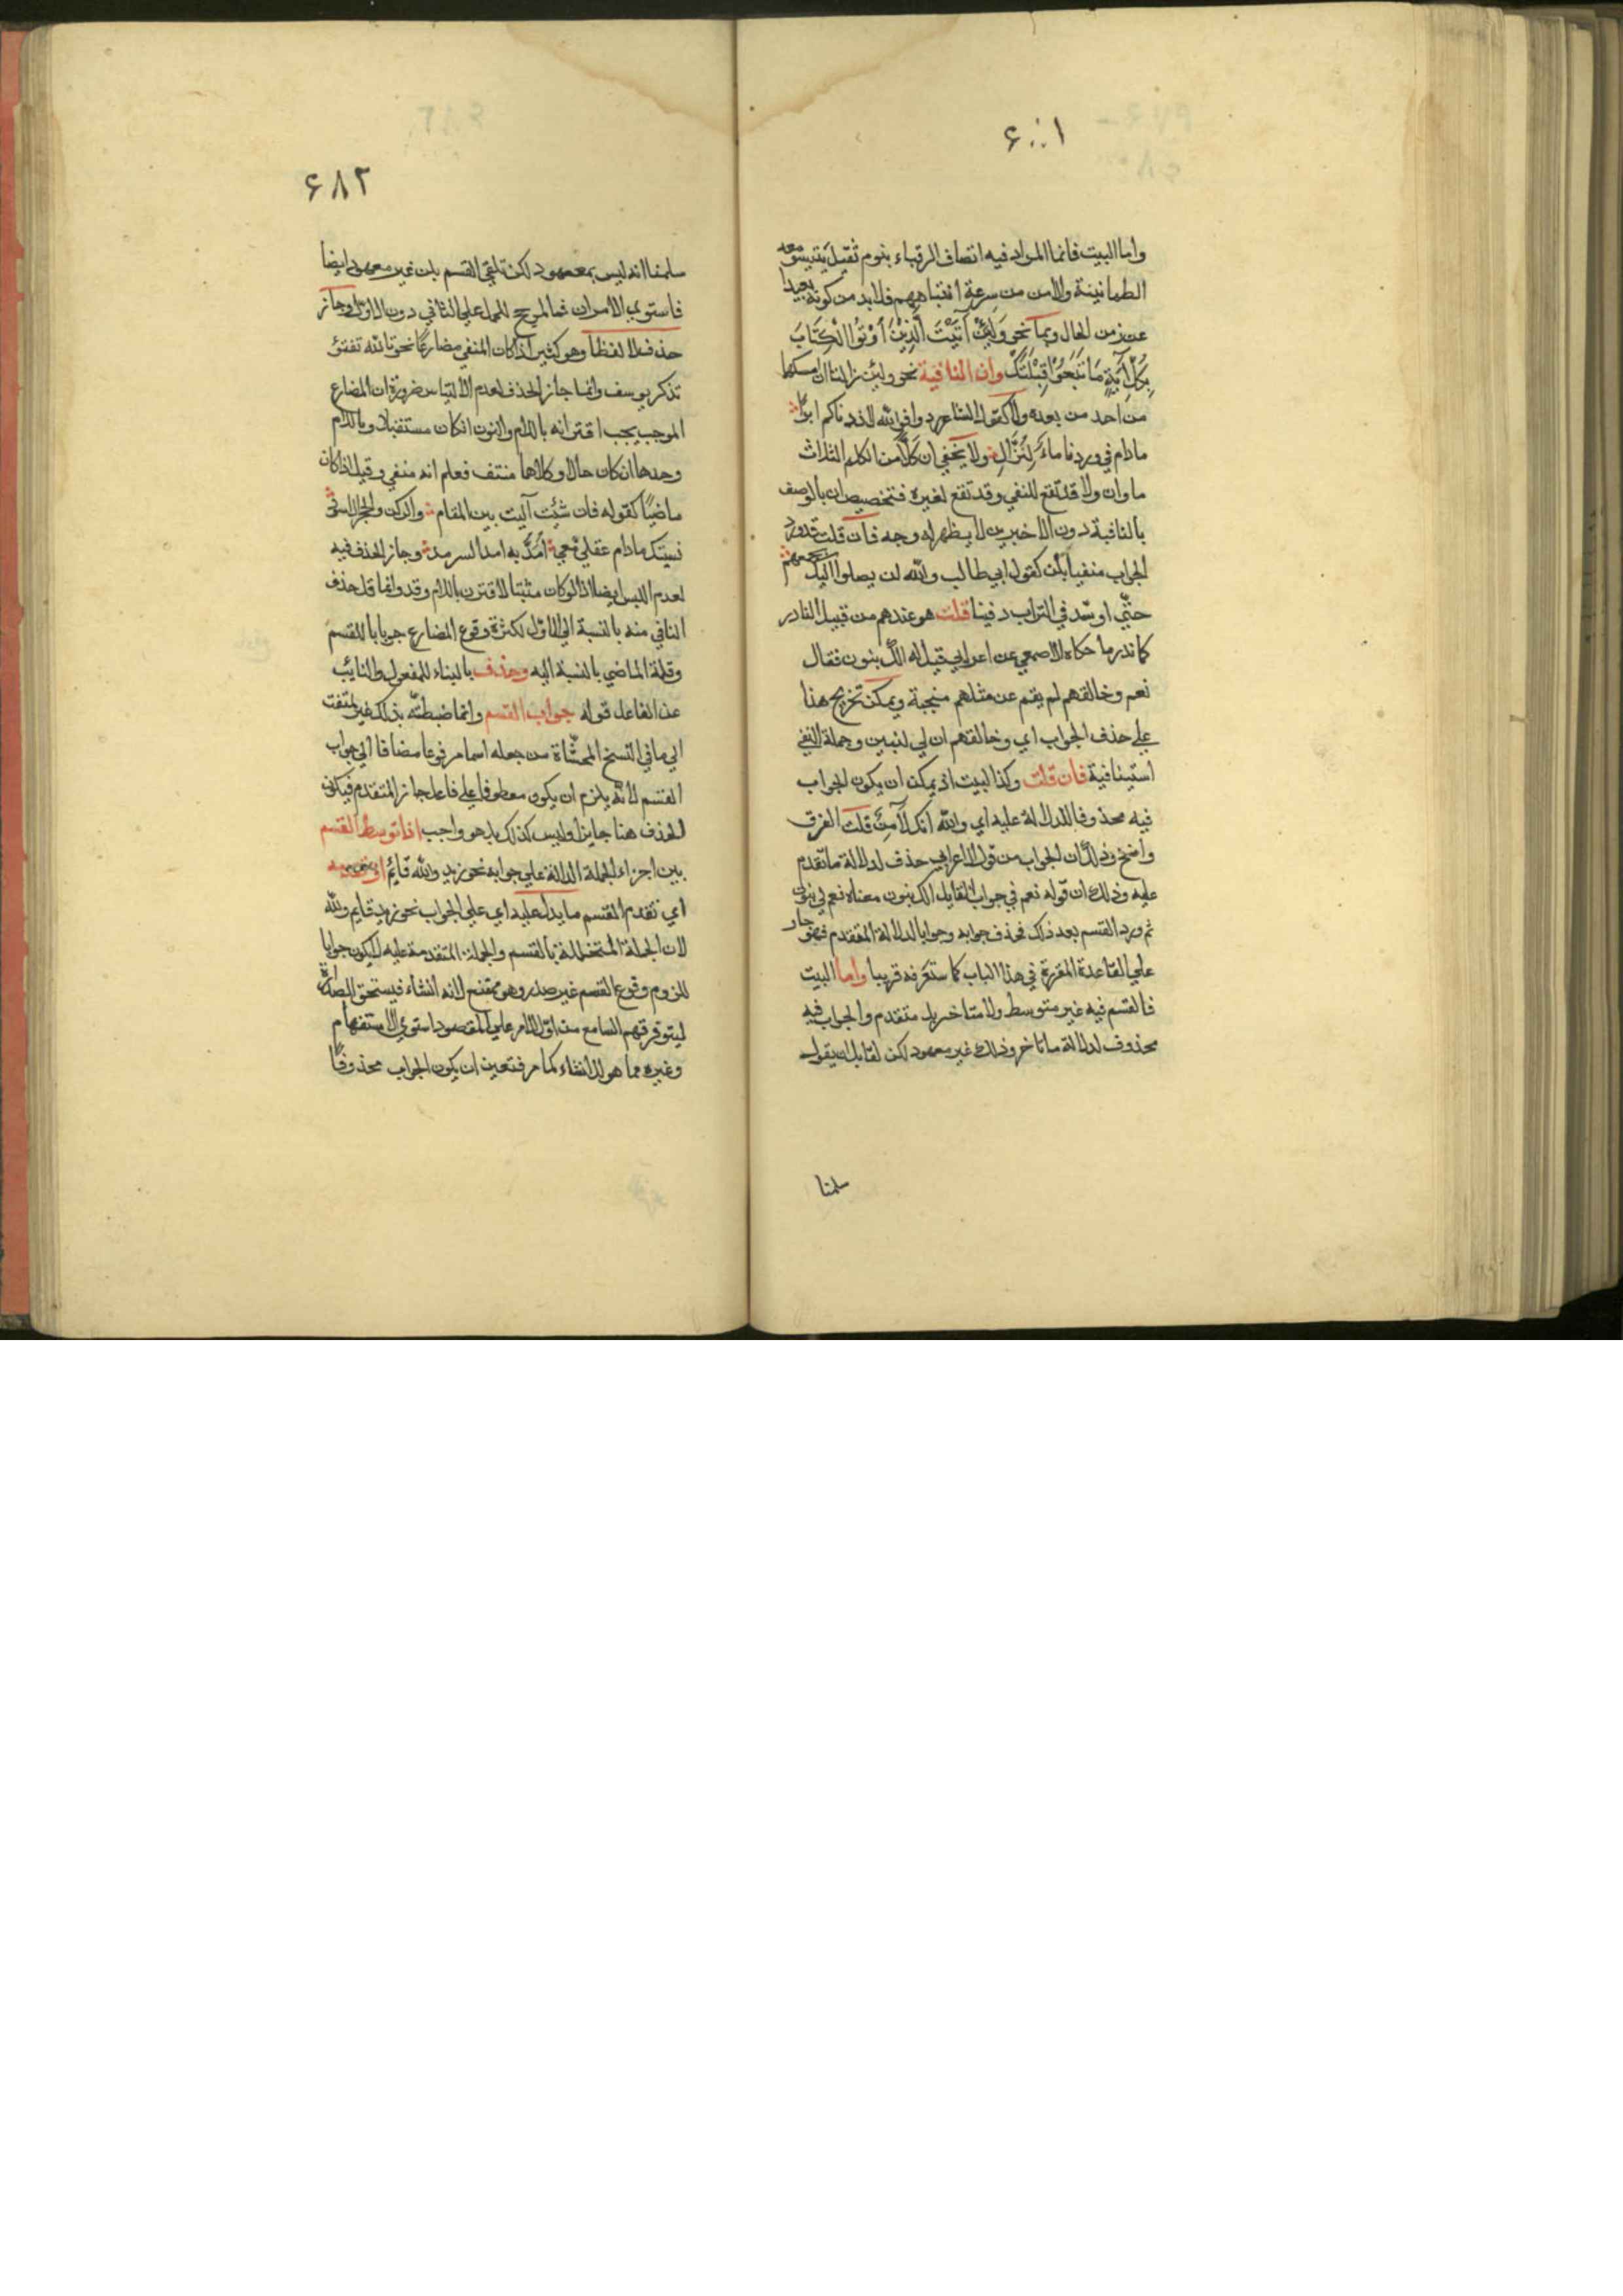 ٦٠٠١
واما البيت فانما المراد فيه اتصاف الرقباء بنوم ثقيل يتبين معه
الطمانينة والامن من سرعة انتباههم فلابد من كونه بعيدا
عن زمن الحال وبما نحو وَلَئِنْ أَتَيْتَ الَّذِيْنَ أُوْتُوا الْكِتَابَ
بِكُلِّ آيَةٍ مَا تَبِعُوْا قِبْلَتَكَ وان النافية نحو ولئن زالتا ان امسكهما
من احد من بعده ولا كقول الشاعر وافي الله لا ناكم ابدًا
مادام في ماء لِنُزَّالِ ولا يخفى ان كلًّا من الكلم الثلاث
ما وان ولا قد تقع للنفي وقد تقع لغيره فتخصيص ان بالوصف
بالنافية دون الاخيرين لا يظهر له وجه فان قلت قد ورد
الجواب منفيا بلن كقول ابي طالب والله لن يصلوا اليك بجمعهم
حتّي اوسّد في التراب دفينا قلت هو عندهم من قبيل النادر
كما ندر ما حكاه الاصمعي عن اعرابي قيل له الك بنون فقال
نعم وخالقهم لم يقم عن مثلهم منجبة ويمكن تخريج هذا
علي حذف الجواب اي وخالقهم ان لي لبنين وجملة النفي
استينافية فان قلت وكذا البيت اذ يمكن ان يكون الجواب
فيه محذوفا للدلالة عليه اي والله انك لآمِنٌ قلت الفرق
واضح وذلك ان الجواب من قول الاعرابي حذف لدلالة ما تقدم
عليه وذلك ان قوله نعم في جواب القايل الك بنون معناه نعم لي بنون
ثم ورد القسم بعد ذلك فحذف جوابه وجوبا لدلالة المتقدم فهو جار
علي القاعدة المقررة في هذا الباب كما ستعرفه قريبا واما البيت
فالقسم فيه غير متوسط ولا متاخر بل متقدم والجواب فيه
محذوف لدلالة ما تاخر وذلك غير معهود لكن لقايل ان يقول
سلمنا
٦٨٢
سلمنا انه ليس بمعهود لكن تلقي القسم بلن غير معهود ايضا
فاستوي الامران فما المرجح للحمل علي الثاني دون الاول وجاز
حذف لا لفظا وهو كثير اذا كان المنفي مضارعًا نحو تالله تفتؤ
تذكر يوسف وانما جاز الحذف لعدم الالتباس ضرورة ان المضارع
الموجب يجب اقترانه باللام والنون ان كان مستقبلا وباللام
وحدها ان كان حالا وكلاهما منتف فعلم انه منفي وقيل اذا كان
ماضيًا كقوله فان شئت آليت بين المقام والركن والحجر الاسود
نسيتك مادام عقلي معي امدّ به امد السرمد وجاز الحذف فيه
لعدم اللبس ايضا اذ لو كان مثبتا لاقترن باللام وقد وانما قل حذف
النافي منه بالنسبة الي الاول لكثرة وقوع المضارع جوابا للقسم
وقلة الماضي بالنسبة اليه وحذف بالبناء للمفعول والنايب
عن الفاعل قوله جواب القسم وانما ضبطته بذلك غير ملتفت
الي ما في النسخ المحشّاة من جعله اسما مرفوعا مضافا الي جواب
القسم لانه يلزم ان يكون معطوفا علي فاعل جاز المتقدم فيكون
الحذف هنا جايزا وليس كذلك بل هو واجب اذا توسط القسم
بين اجزاء الجملة الدالة علي جوابه نحو زيد والله قائم او تقدمه
اي تقدم القسم ما يدل عليه اي علي الجواب نحو زيد قايم والله
لان الجملة المتخللة بالقسم والجملة المتقدمة عليه لا يكون جوابا
للزوم وقوع القسم غير صدر وهو ممتنع لانه انشاء فيستحق الصدارة
ليتوفر فهم السامع من اول الامر علي المقصود استوي الاستفهام
وغيره مما هو للانشاء كما مر فتعين ان يكون الجواب محذوفًا